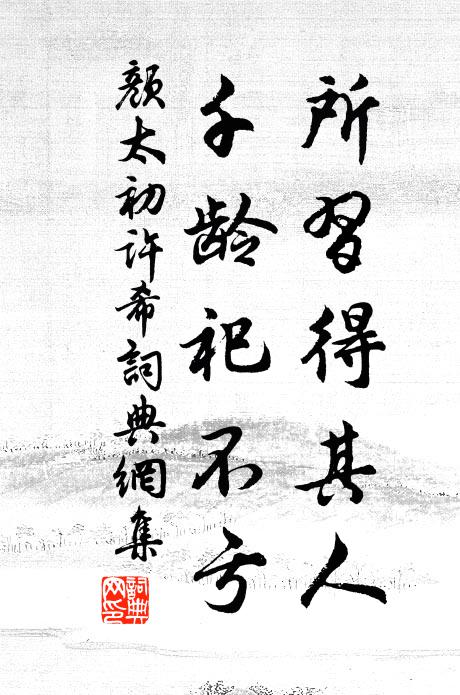 所習得其人
千龄祀不亏
顏太初許希詞典網集
詞典網印